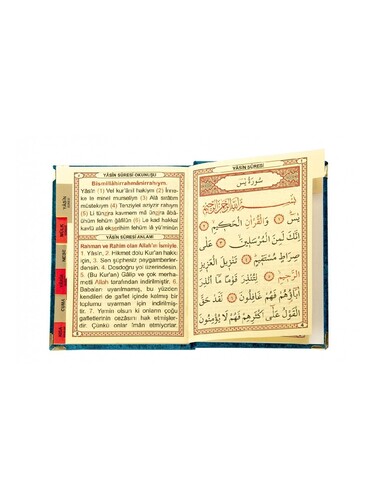 YÂSİN SÛRESİ OKUNUŞU
Bismillâhirrahmânirrahıym.
Yâsîn (1) Vel kur'ânil hakiym (2) İnne-
ke le minel murseliyn (3) Alâ sırâtım
müstekiym (4) Tenziylel aziyzir rahıym
(5) Li tünzira kavmem mâ ünzira âbâ-
ühüm fehüm ğâfilûn (6) Le kad hakkal
kavlü alâ ekserihim fehüm lâ yü'minûn
YÂSİN SÛRESİ ANLAMI
Rahman ve Rahîm olan Allah'ın İsmiyle.
1. Yâsîn, 2. Hikmet dolu Kur'an hakkı
için, 3. Sen şüphesiz peygamberler-
densin. 4. Dosdoğru yol üzerindesin
5. (Bu Kur'an) Çok güçlü ve çok mer-
hametli Allah tarafından indirilmiştir. 6.
Babaları uyarılmamış, bu yüzden
kendileri de gaflet içinde kalmış bir
toplumu uyarman için indirilmiştir.
7. Yemin olsun ki onların çoğu
gafletlerinin cezâsını hak etmişler-
dir. Çünkü onlar îmân etmiyorlar.
YÂSİN
MÜLK
NEBE'
CUMA
YÂSİN SÛRESİ
سُورَةُ يٰسٓ
بِسْمِ اللّٰهِ الرَّحْمٰنِ الرَّحِيمِ
يٰسٓ ﴿١﴾ وَالْقُرْاٰنِ الْحَكِيمِ ﴿٢﴾
اِنَّكَ لَمِنَ الْمُرْسَلِينَ ﴿٣﴾ عَلٰى
صِرَاطٍ مُسْتَقِيمٍ ﴿٤﴾ تَنْزِيلَ الْعَزِيزِ
الرَّحِيمِ ﴿٥﴾ لِتُنْذِرَ قَوْمًا مَٓا اُنْذِرَ
اٰبَٓاؤُ۬هُمْ فَهُمْ غَافِلُونَ ﴿٦﴾ لَقَدْ حَقَّ
الْقَوْلُ عَلٰٓى اَكْثَرِهِمْ فَهُمْ لَا يُؤْمِنُونَ